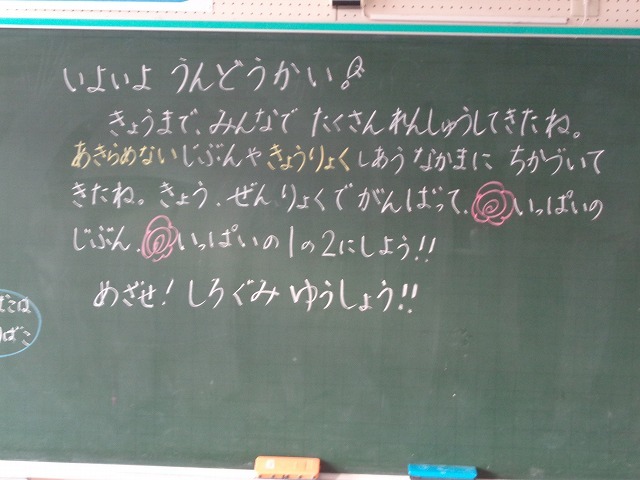 いよいよ うんどうかい!
きょうまで、みんなで たくさん れんしゅうしてきたね。
あきらめないじぶんや きょうりょくしあう なかまに ちかづいて
きたね。きょう、ぜんりょくで がんばって、いっぱいの
じぶん、いっぱいの1の2にしよう!!
めざせ! しろぐみ ゆうしょう!!